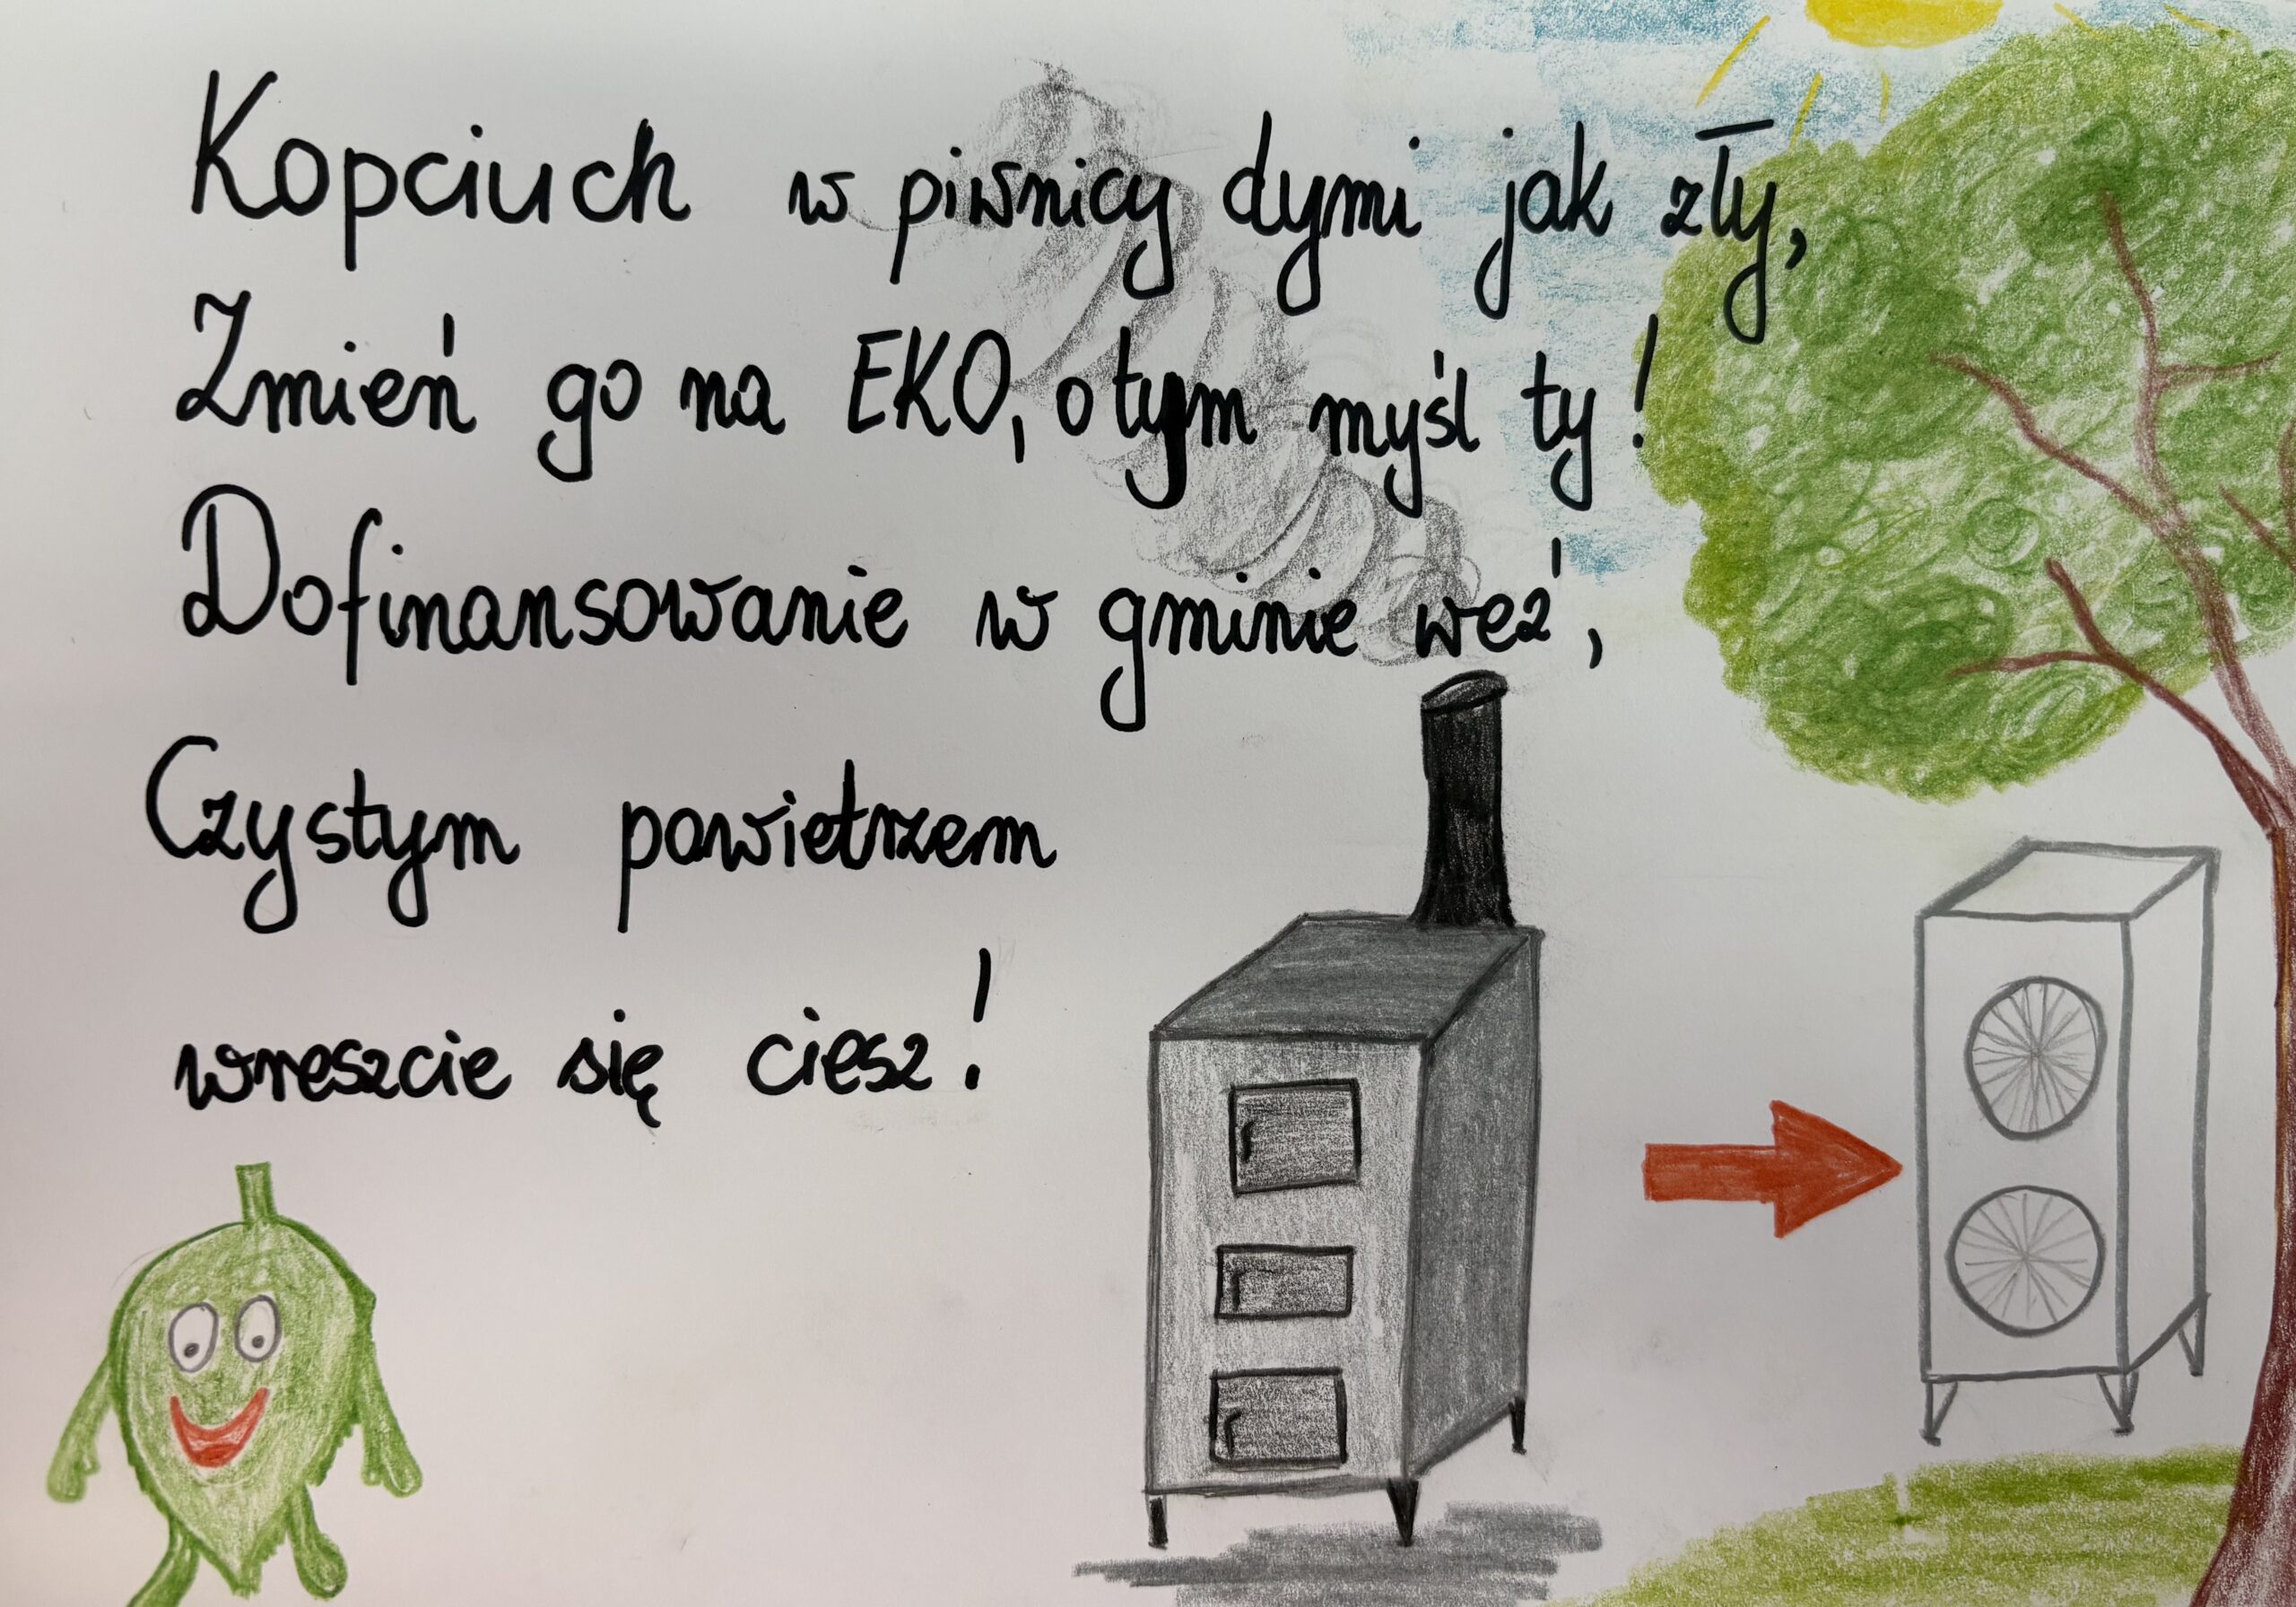 Kopciuch w piwnicy dymi jak zły,
Zmień go na EKO, o tym myśl ty!
Dofinansowanie w gminie weź,
Czystym powietrzem
wreszcie się ciesz!